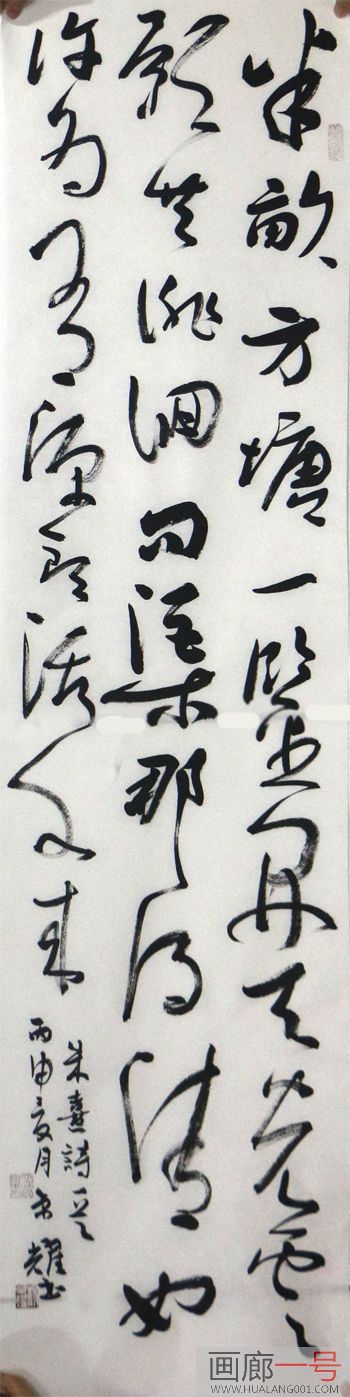 半畝方塘一鑒開天光雲
影共徘徊問渠那得清如
許為有源頭活水來
朱熹詩一首
丙申夏月耀书
画廊一号
WWW.HUALANG001.COM